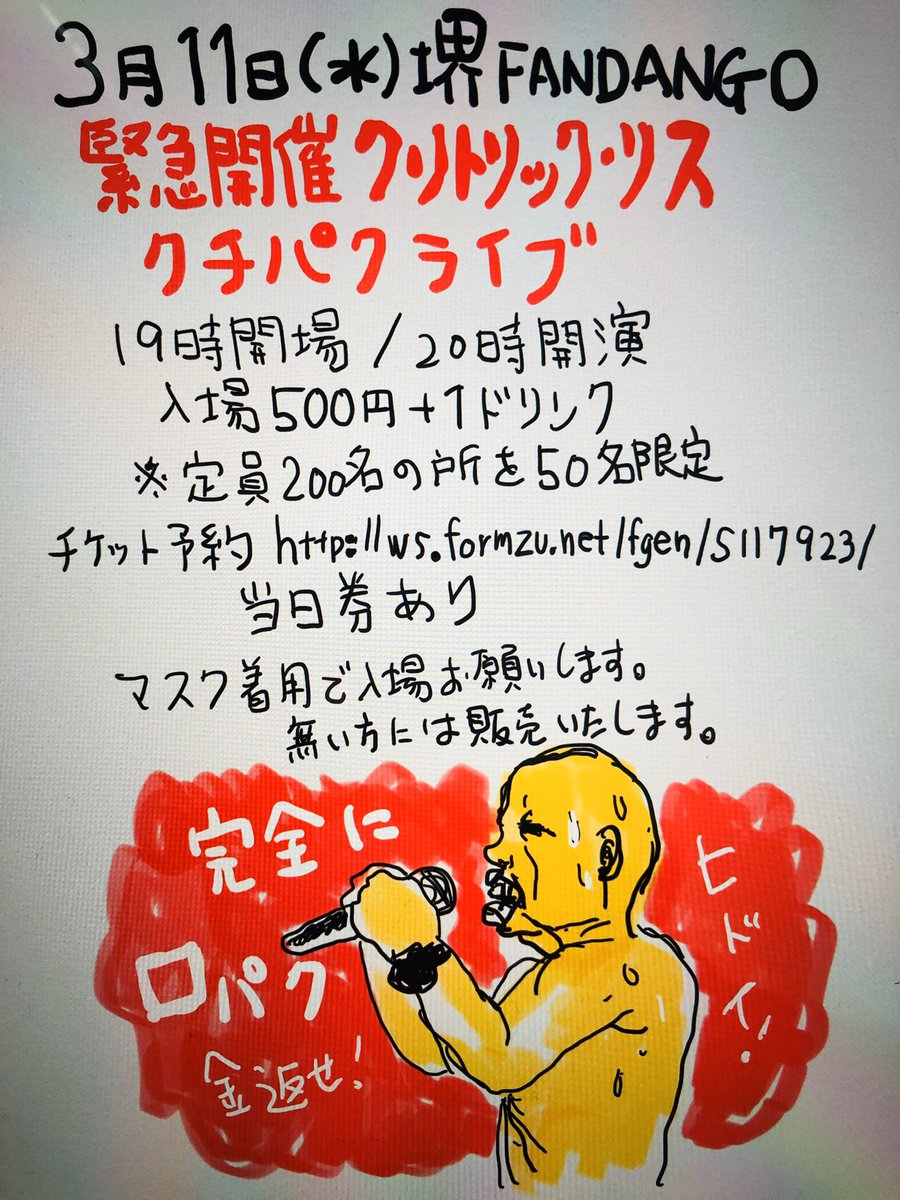 3月11日(水)堺FANDANGO
緊急開催クリトリック・リス
クチパクライブ
19時開場/20時開演
入場500円+1ドリンク
※定員200名の所を50名限定
チケット予約 http://ws.formzu.net/fgen/S117923/
当日券あり
マスク着用で入場お願いします。
無い方には販売いたします。
完全に
口パク
金返せ!
ヒドイ!